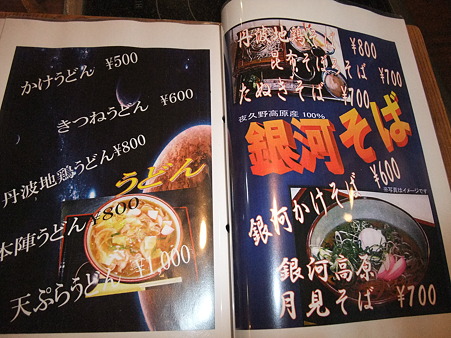 かけうどん ¥500
きつねうどん ¥600
丹波地鶏うどん ¥800
うどん
本陣うどん ¥800
天ぷらうどん ¥1,000
丹波地鶏そば ¥800
昆布そば ¥700
たぬきそば ¥700
夜久野高原産 100%
銀河そば
¥600
※写真はイメージです
銀河かけそば
銀河高原
月見そば ¥700